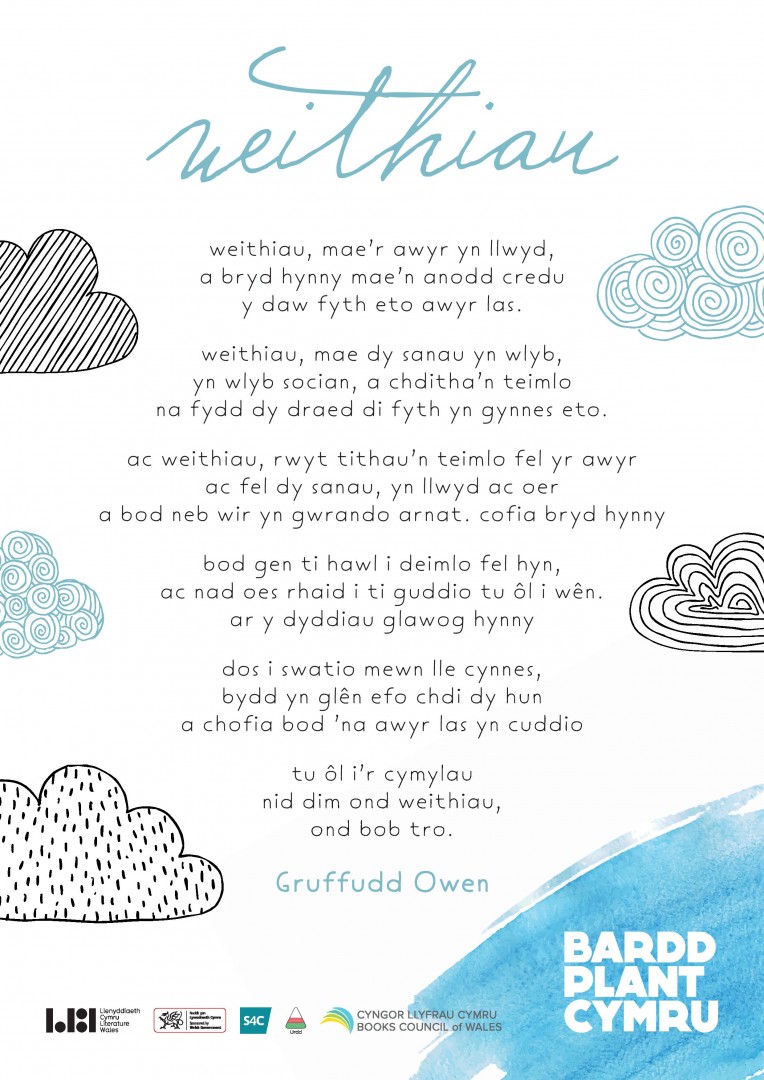 weithiau
weithiau, mae'r awyr yn llwyd,
a bryd hynny mae'n anodd credu
y daw fyth eto awyr las.
weithiau, mae dy sanau yn wlyb,
yn wlyb socian, a chditha'n teimlo
na fydd dy draed di fyth yn gynnes eto.
ac weithiau, rwyt tithau'n teimlo fel yr awyr
ac fel dy sanau, yn llwyd ac oer
a bod neb wir yn gwrando arnat. cofia bryd hynny
bod gen ti hawl i deimlo fel hyn,
ac nad oes rhaid i ti guddio tu ôl i wên.
ar y dyddiau glawog hynny
dos i swatio mewn lle cynnes,
bydd yn glên efo chdi dy hun
a chofia bod 'na awyr las yn cuddio
tu ôl i'r cymylau
nid dim ond weithiau,
ond bob tro.
Gruffudd Owen
BARDD
PLANT
CYMRU
Llenyddiaeth
Cymru
Literature
Wales
Noddir gan
Lywodraeth Cymru
Sponsored by
Welsh Government
S4C
Urdd
CYNGOR LLYFRAU CYMRU
BOOKS COUNCIL of WALES